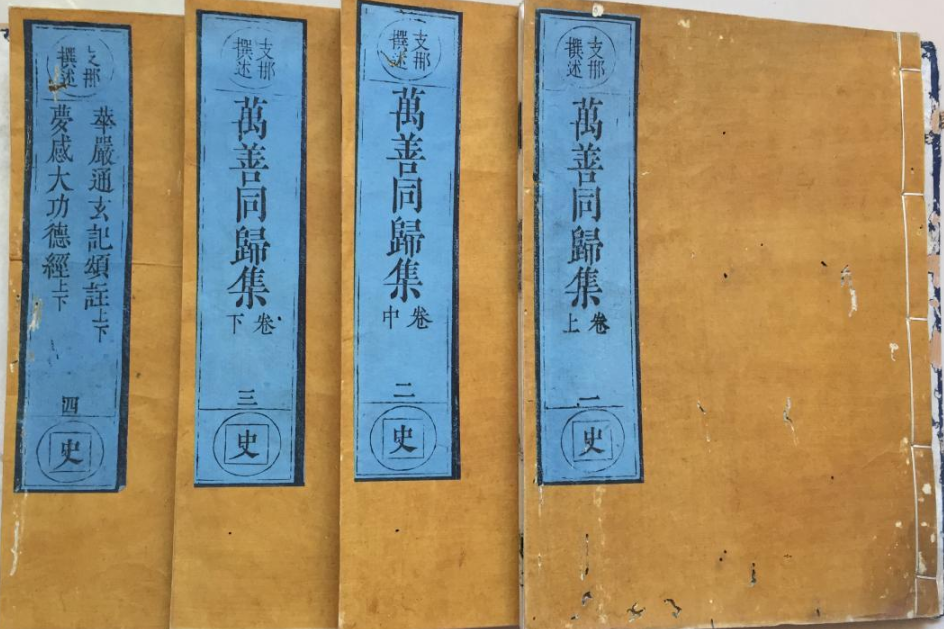 支那
撰述
萬善同歸集
卷上
一
史
支那
撰述
萬善同歸集
卷中
二
史
支那
撰述
萬善同歸集
卷下
三
史
支那
撰述
華嚴通玄記頌註上下
夢感大功德經上下
四
史